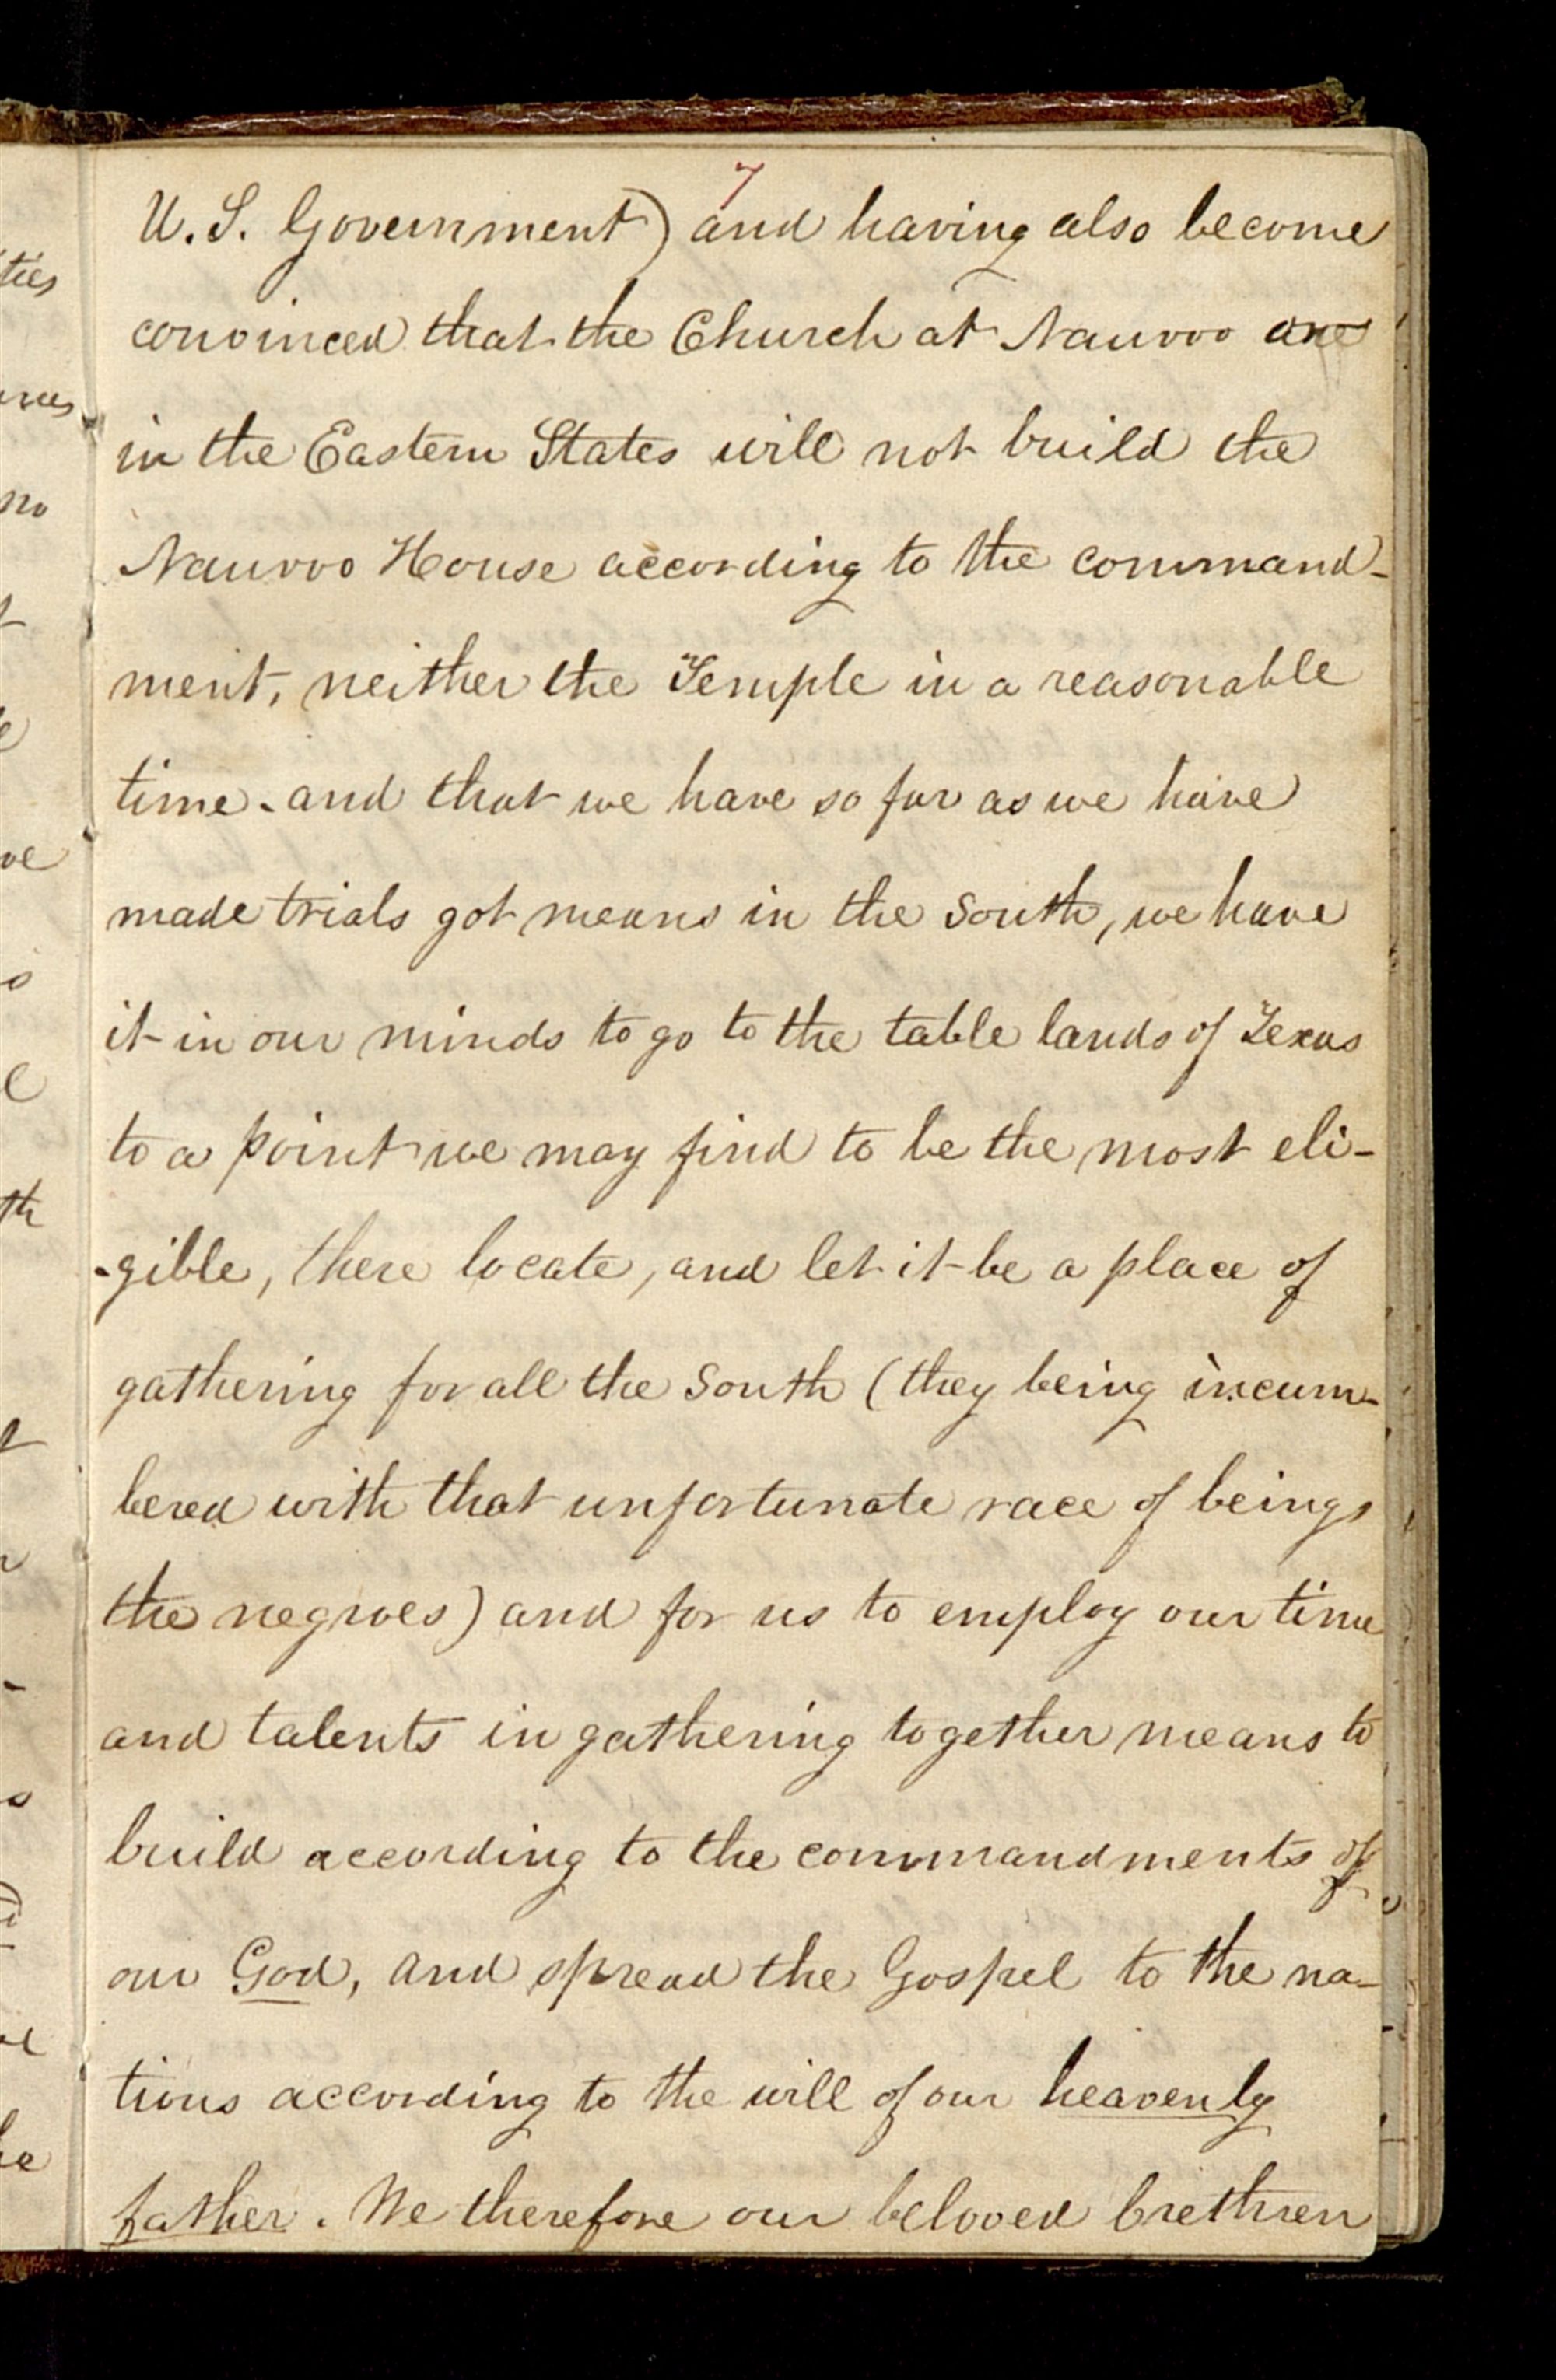 7
U.S. Government) and having also become
convinced that the Church at Nauvoo are
in the Eastern States will not build the
Nauvoo House according to the command-
ment, neither the Temple in a reasonable
time. and that we have so far as we have
made trials got means in the South, we have
it in our minds to go to the table lands of Texas
to a point we may find to be the most eli-
-gible, there locate, and let it be a place of
gathering for all the South (they being incum-
bered with that unfortunate race of beings
the negroes) and for us to employ our time
and talents in gathering together means to
build according to the commandments of
our God, and spread the Gospel to the na-
tions according to the will of our heavenly
father. We therefore our beloved brethren